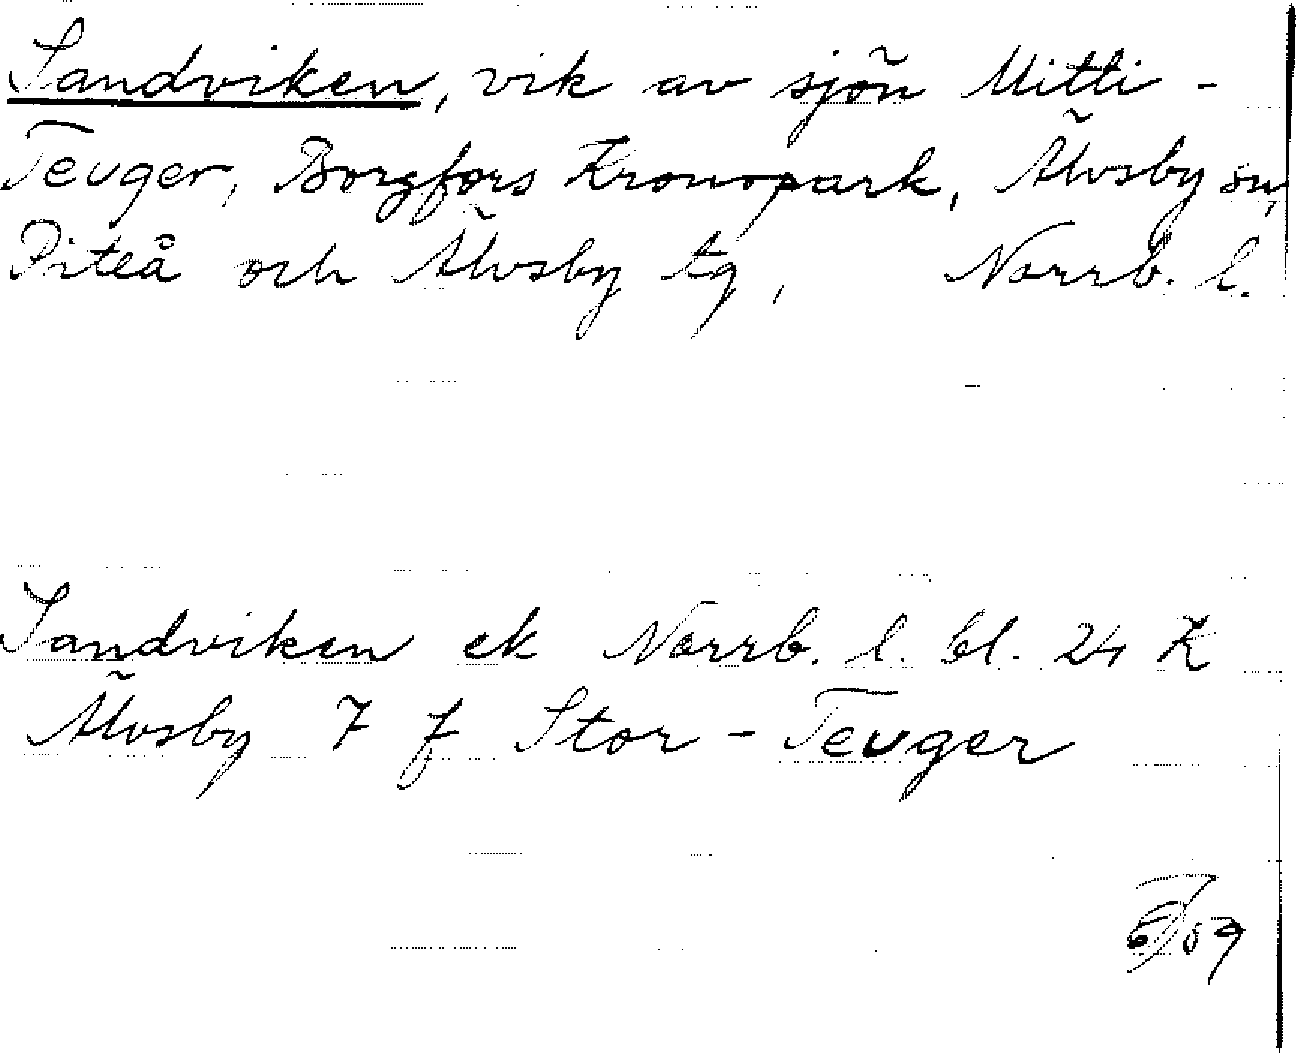 Sandviken, vik av sjön Mitti-
Teuger, Borgfors Kronopark, Älvsby sn,
Piteå och Älvsby tg, Norrb. l.
Sandviken ek Norrb. l. bl. 24 K
Älvsby 7 f Stor-Teuger